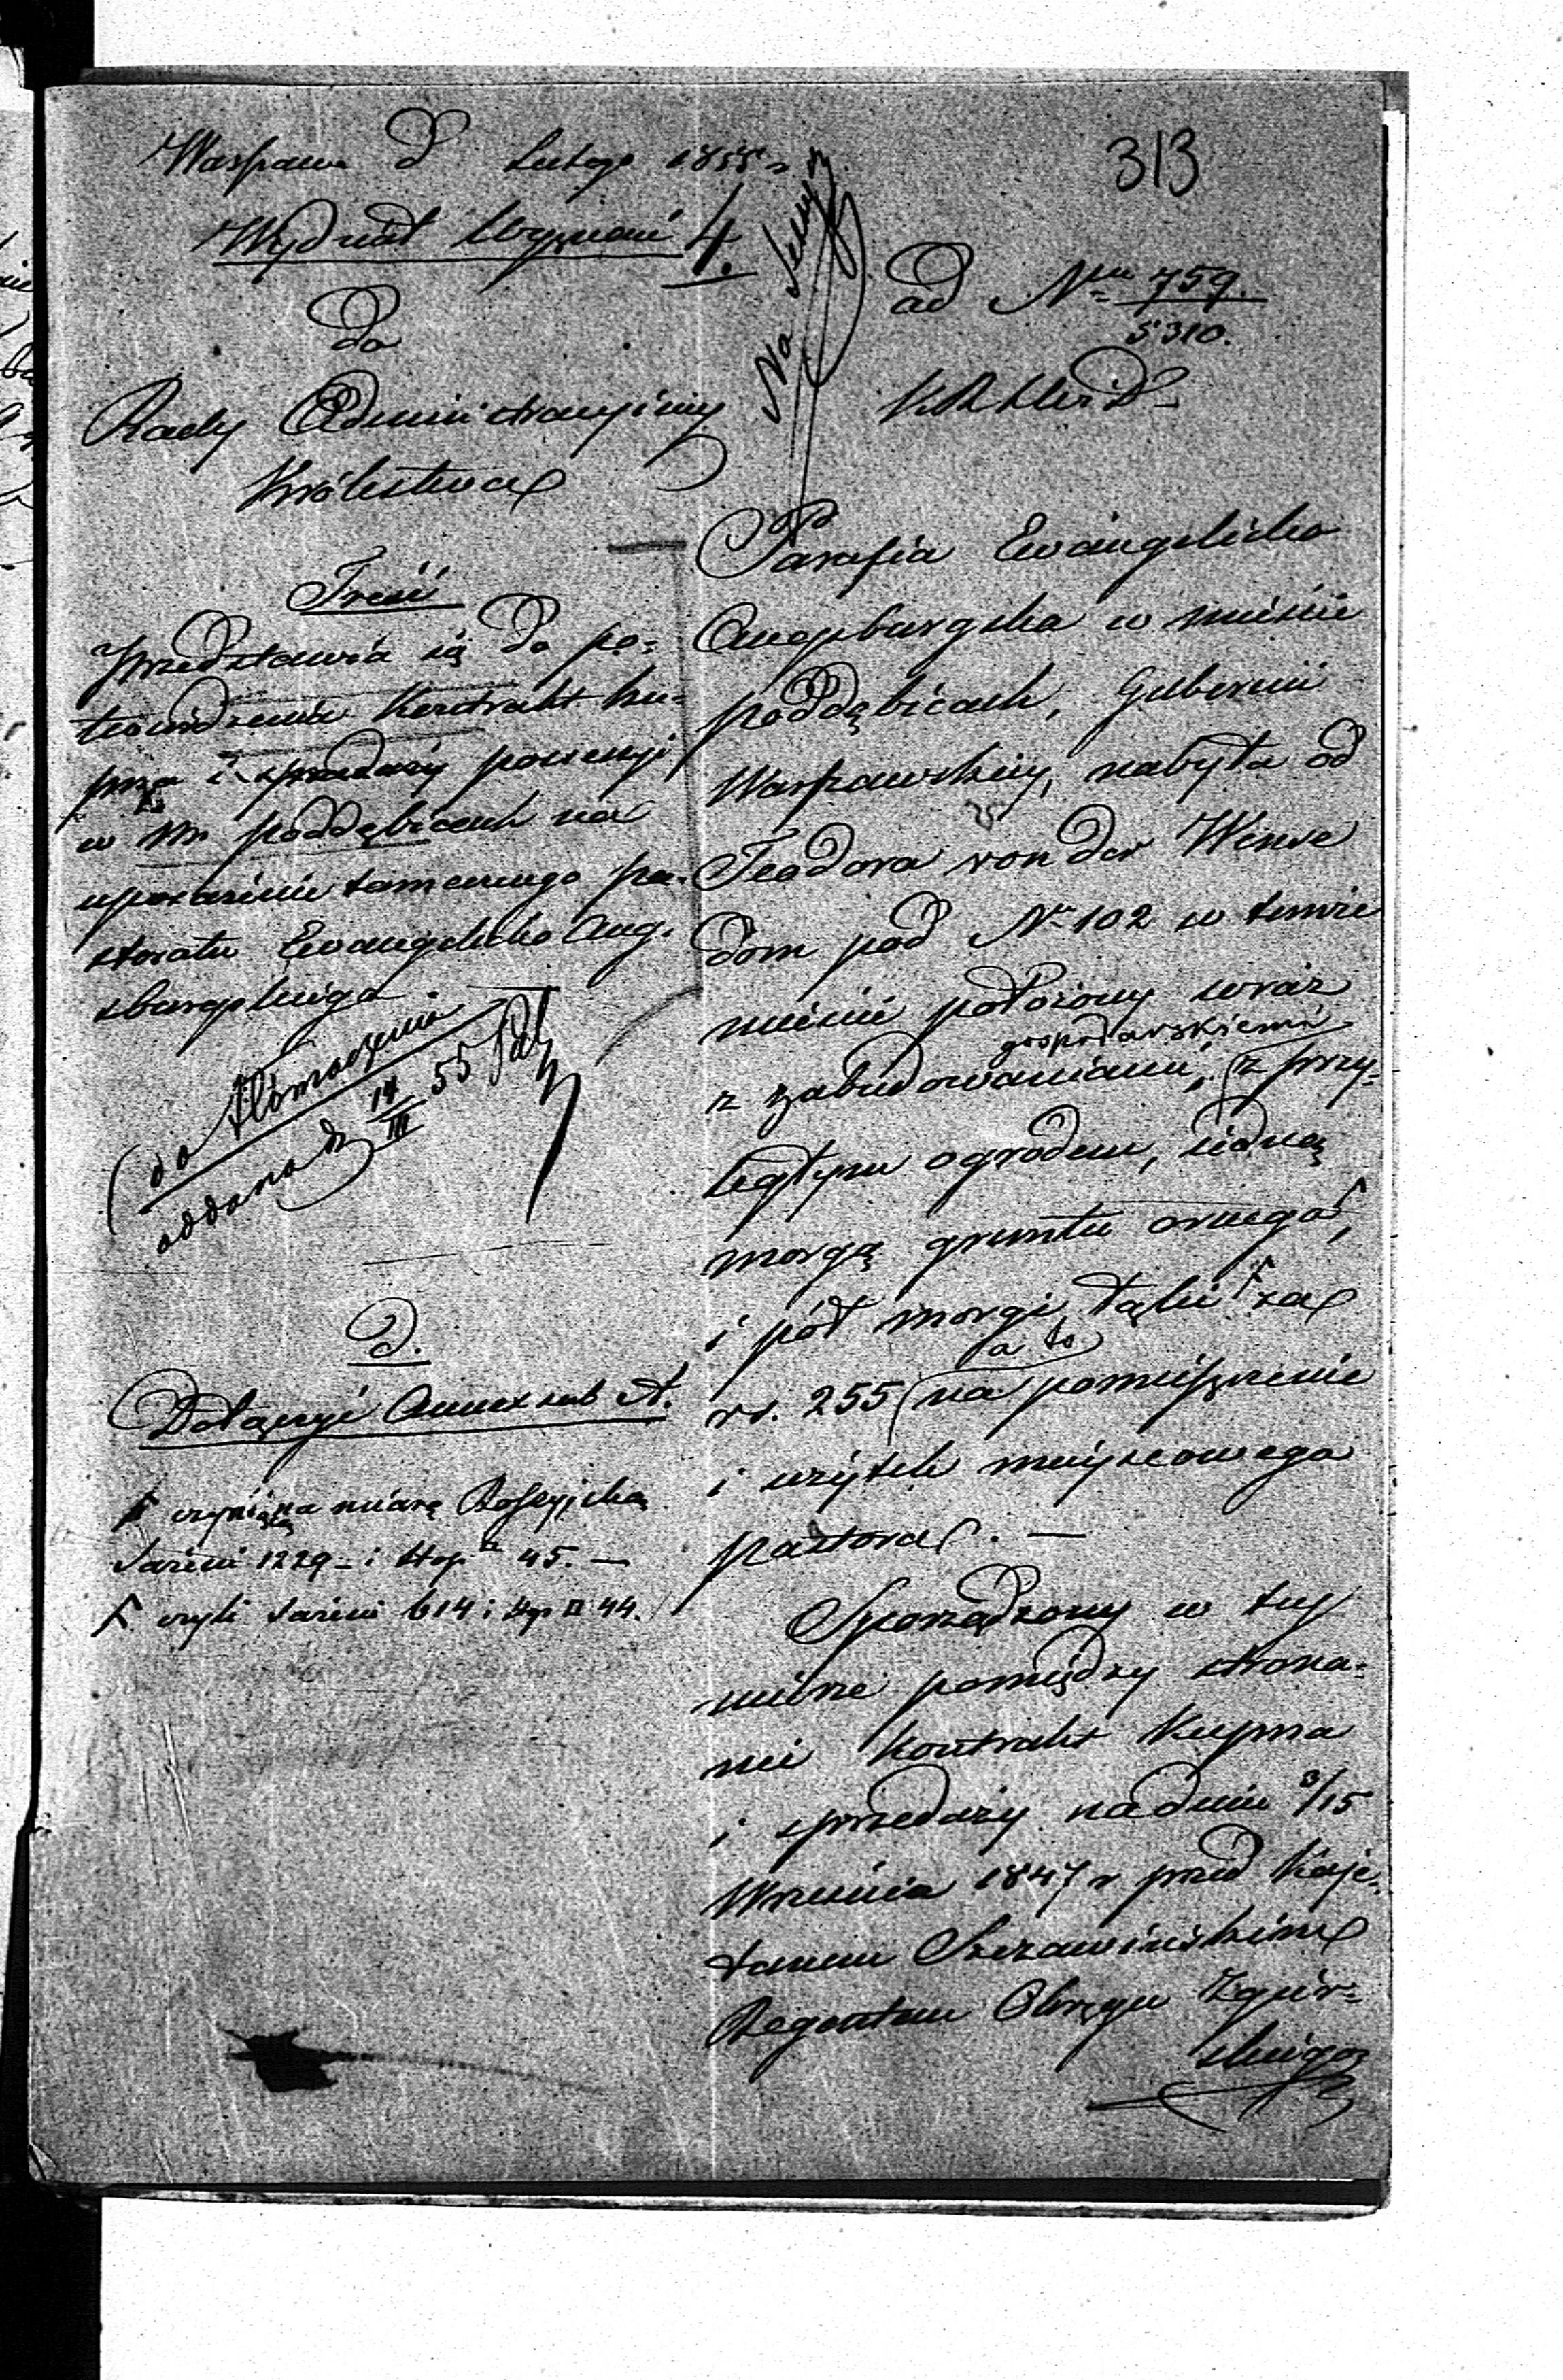 313
Warszawa d Lutego 1855 r
Wydział Wyznań 4.
Do
Rady Administracyjnej
Królestwa
Treść
Przedstawia się do po=
twierdzenia Kontrakt ku=
pna i sprzedaży possessyi
w M. Poddębicach na
uposażenie tamecznego pa=
storatu Ewangelicko Aug=
sburgskiego.
do tłómaczenia
oddano d 14/III 55
D.
Dołączyć Annex sub A.
Γ czyniącą na miarę Rossyjską
Sażeni 1229 – i stop 45. —
Γ. czyli sażeni 614 i stop □ 44.
Na
ad Nru 759.
5310.
K R
Parafia Ewangelicko
Augsburgska w mieście
Poddębicach, Gubernii
Warszawskiej, nabyła od
Teodora von der Wense
dom pod Nr 102 w temże
mieście położony wraz
gospodarskiemi
z zabudowaniami, z przy=
ległym ogrodem, jedną
morgą gruntu ornego Γ,
i pół morgi łąki Γ za
a to
rs. 255 na pomieszczenie
i użytek miejscowego
pastora. —
Sporządzony w tej
mierze pomiędzy strona=
mi Kontrakt Kupna
i sprzedaży na dniu 3/15
Września 1847 r przed Kaje=
tanem Szczawińskim
Regentem Okręgu Zgier=
skiego